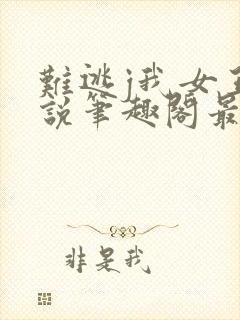 難逃j我 女
説筆趣閣最
非是我